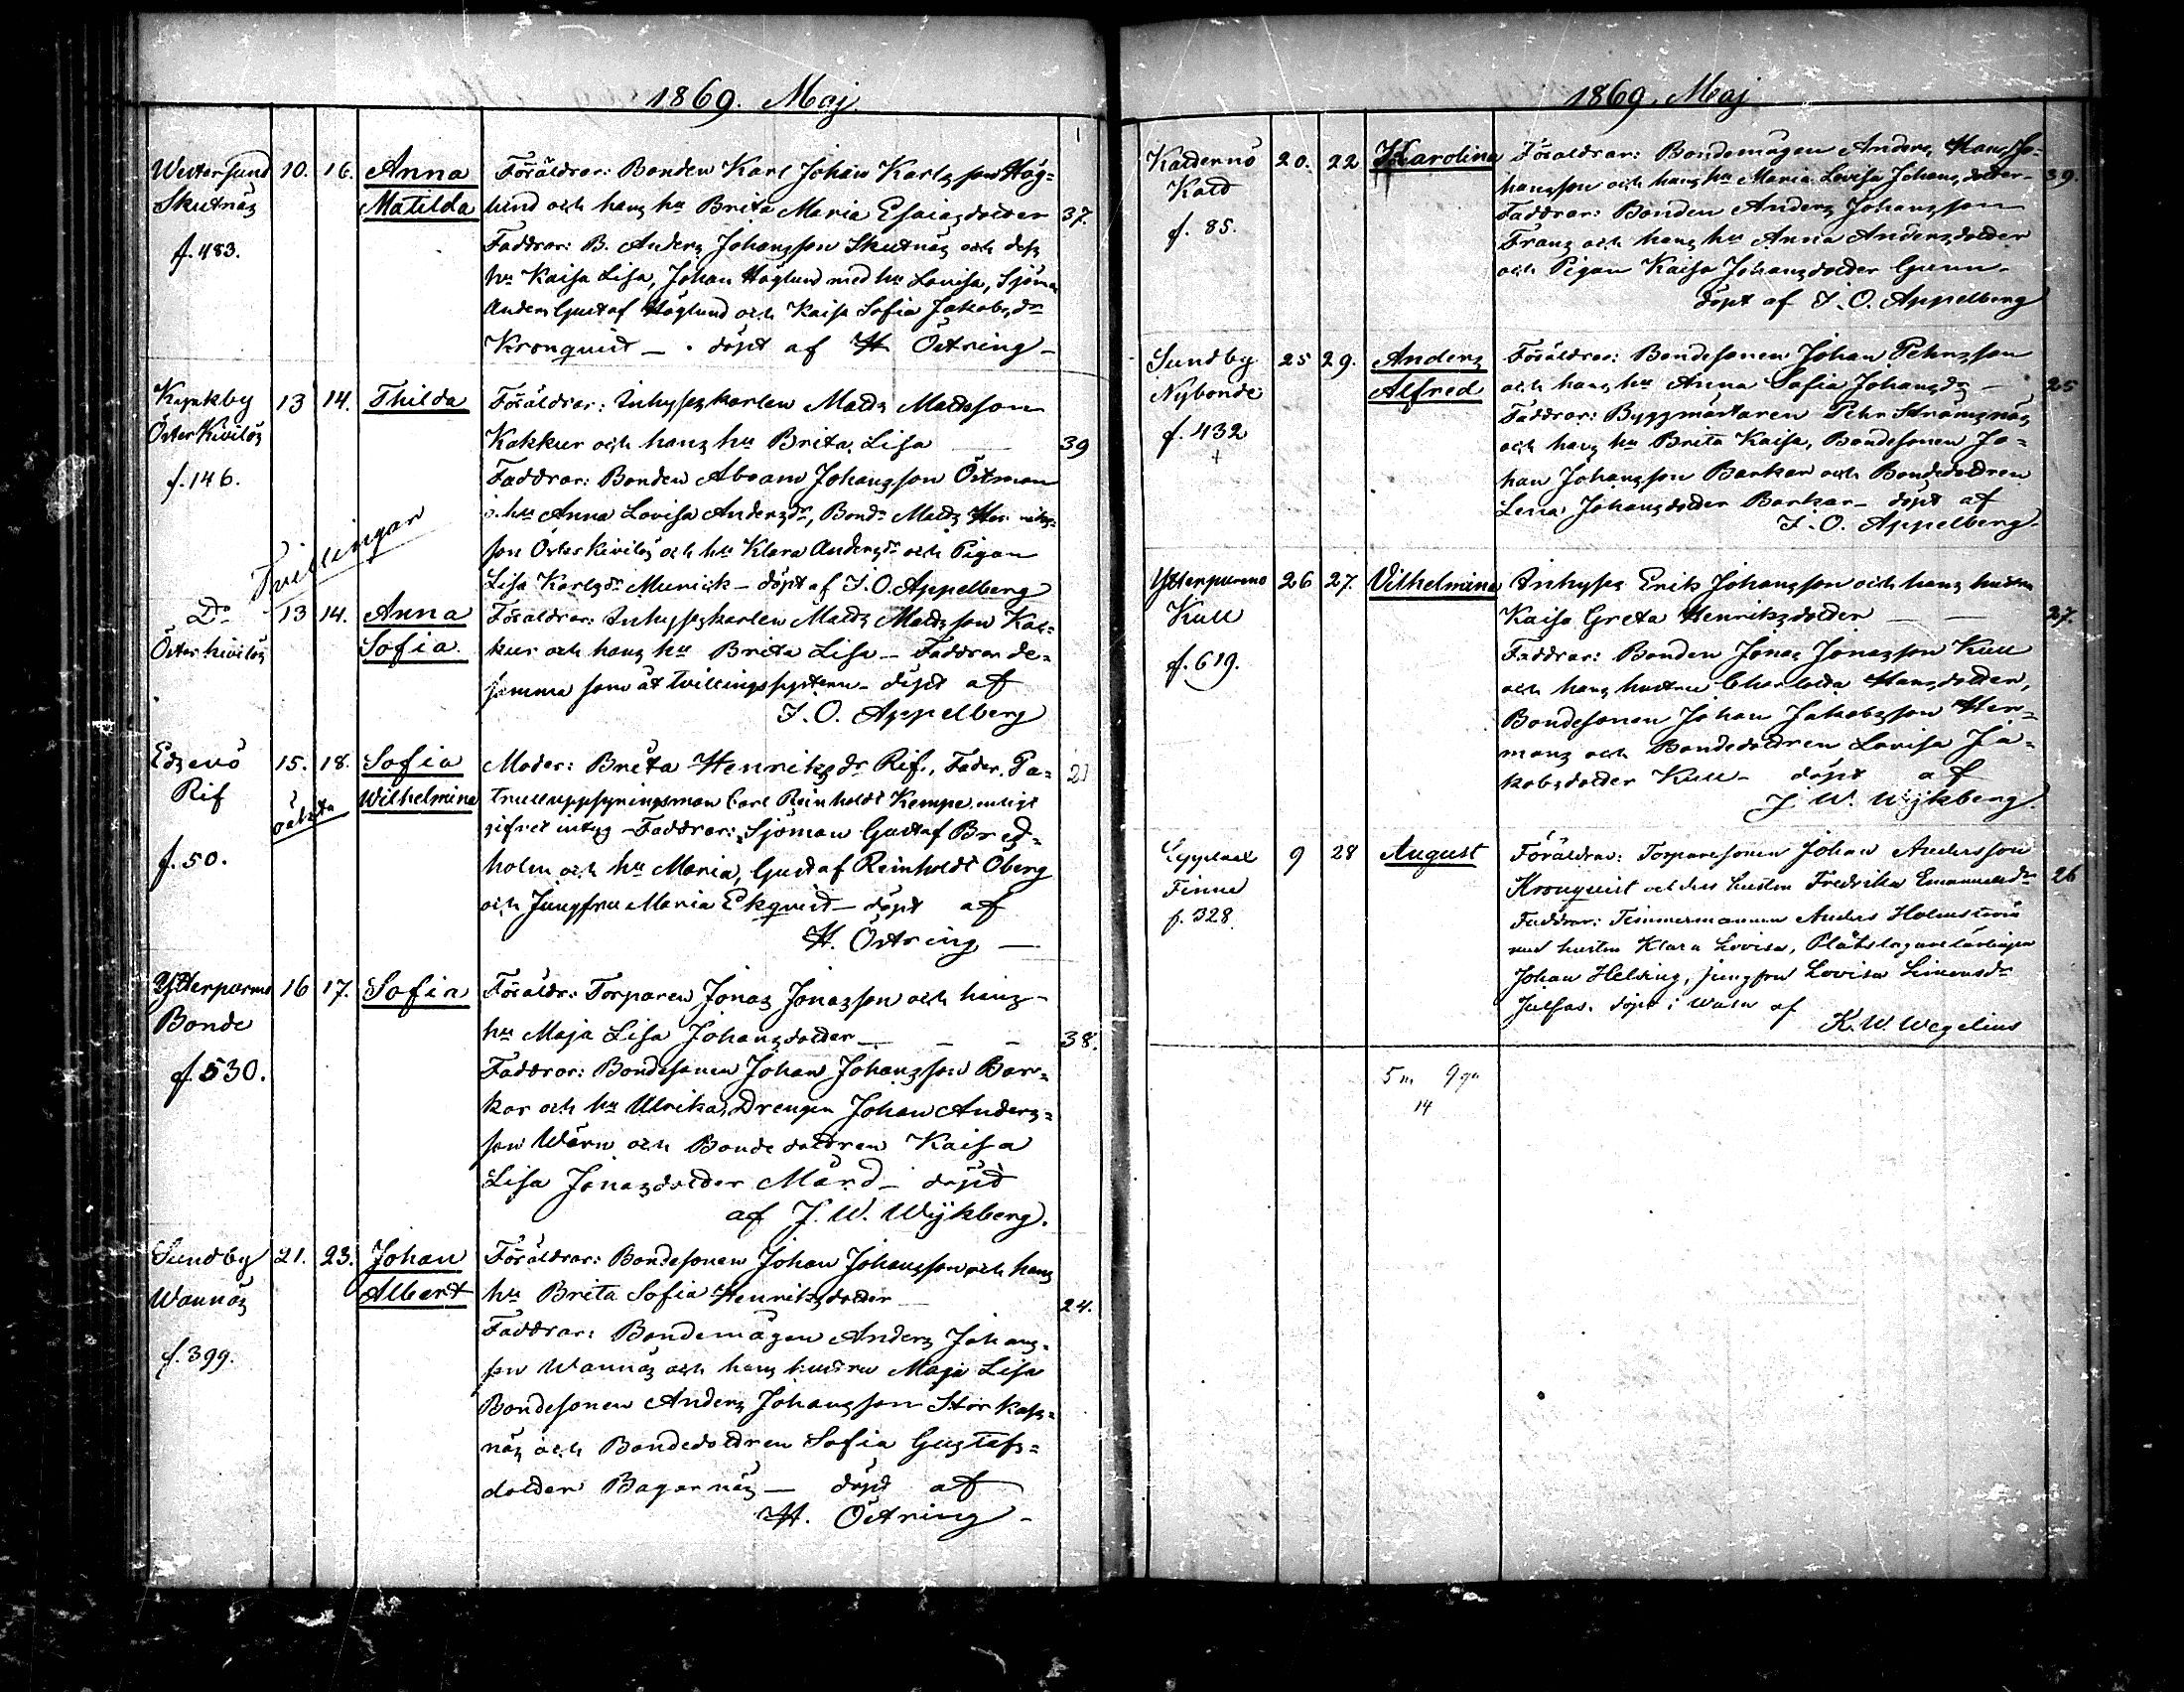 1869. Maj.
Westersund 10. 16. Anna Föräldrar: Bonden Karl Johan Karlsson Hög=
Skutnäs Matilda lund och hans hu Brita Maria Esaiasdotter 37.
f. 483. Faddrar: B. Anders Johansson Skutnäs och dess
hu Kaisa Lisa, Johan Höglund med hu Lovisa, Sjöm.
Anders Gustaf Höglund och Kaisa Sofia Jakobsdr
Kronquist — döpt af H. Östring —
13 14. Thilda Föräldrar: Inhyseskarlen Matts Mattsson
Öster Kivilös Kakkur och hans hu Brita Lisa 39
f. 146. Faddrar: Bonden Abram Johansson Östman
o. hu Anna Lovisa Andersdr, Bond. Matts
son Öster Kivilös och hu Klara Andersdr och Pigan
Tvillingar
Lisa Karlsdr Munick — döpt af J. O. Appelberg
Do 13 14. Anna Föräldrar: Inhyseskarlen Matts Mattsson Kak=
Öster kivilös Sofia kur och hans hu Brita Lisa — Faddrar de=
samma som åt tvillingssystern — döpt af
J. O. Appelberg
Edsevö 15. 18. Sofia Moder: Brita Henriksdr Rif., Fader. Pa=
Rif oäkta Wilhelmina trulluppsyningsman Carl Reinholdt Kempe enligt
gifvet intyg — Faddrar: Sjöman Gustaf Bred=
f. 50. holm och hu Maria, Gustaf Reinholdt Öberg
och Jungfru Maria Ekqvist — döpt af
H. Östring —
Ytterpurmo 16 17. Sofia Föräldr: Torparen Jonas Jonasson och hans
Bonde hu Maja Lisa Johansdotter — — — 38.
f. 530. Faddrar: Bondesonen Johan Johansson Bar=
kar och hu Ulrika, Drengen Johan Anders=
son Wärn och Bondedottren Kaisa
Lisa Jonasdotter Mård — döpt
af J. W. Wijkberg.
Sundby 21. 23. Johan Föräldrar: Bondesonen Johan Johansson och hans
Wannäs Albert hu Brita Sofia Henriksdotter 24.
f. 399. Faddrar: Bondemågen Anders Johans=
son Wannäs och hans hustru Maja Lisa
Bondesonen Anders Johansson Storkass=
näs och Bondedottren Sofia Gustafs=
dotter Bagarnäs — döpt af
H. Östring —
1869. Maj
20. 22 Karolina Föräldrar: Bondemågen Anders Hans Jo=
hansson och hans hu Maria Lovisa Johansdotter — 39.
f. 85. Faddrar: Bonden Anders Johansson
Frans och hans hu Anna Andersdotter
och Pigan Kaisa Johansdotter Gunn —
döpt af J. O. Appelberg
Sundby 25 29. Anders Föräldrar: Bondesonen Johan Pehrsson
Nybonde Alfred och hans hu Anna Sofia Johansdr — 25
f. 432 Faddrar: Byggmästaren Pehr Strömsnäs
+ och hans hu Brita Kaisa, Bondesonen Jo=
han Johansson Barkar och Bondedottren
Lena Johansdotter Barkar — döpt af
J. O. Appelberg.
Ytterpurmo 26 27. Vilhelmina Inhyses Erik Johansson och hans hustru
Kull Kaisa Greta Henriksdotter — — 27.
f. 619. Faddrar: Bonden Jonas Jonasson Kull
och hans hustru Charlotta Hansdotter,
Bondesonen Johan Jakobsson Her=
mans och Bondedottren Lovisa Ja=
kobsdotter Kull — döpt af
J. W. Wijkberg.
9 28 August Föräldrar: Torparesonen Johan Andersson
Finne Kronquist och dess hustru Fredrika Emanuelsdr 26
f. 328. Faddrar: Timmermannen Anders Holmström
med hustru Klara Lovisa, Plåtslagarelärlingen
Johan Helsing, jungfru Lovisa Simonsdr
döpt i Wasa af
K. W. Wegelius
5 m 9 qu
14